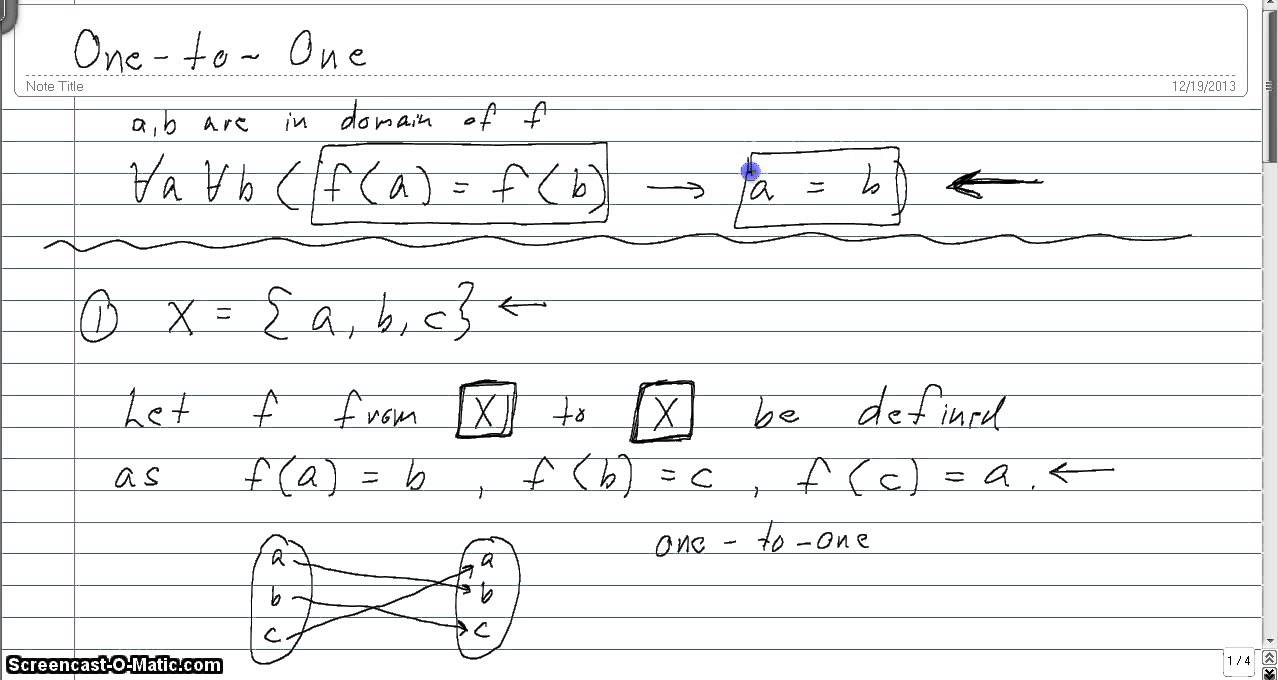 One-to-One
Note Title
12/19/2013
a,b are in domain of f
∀a ∀b (f(a) = f(b) → a = b) ←
① X = {a, b, c} ←
Let f from X to X be defined
as f(a) = b, f(b) = c, f(c) = a. ←
one-to-one
a a
b b
c c
Screencast-O-Matic.com
1/4